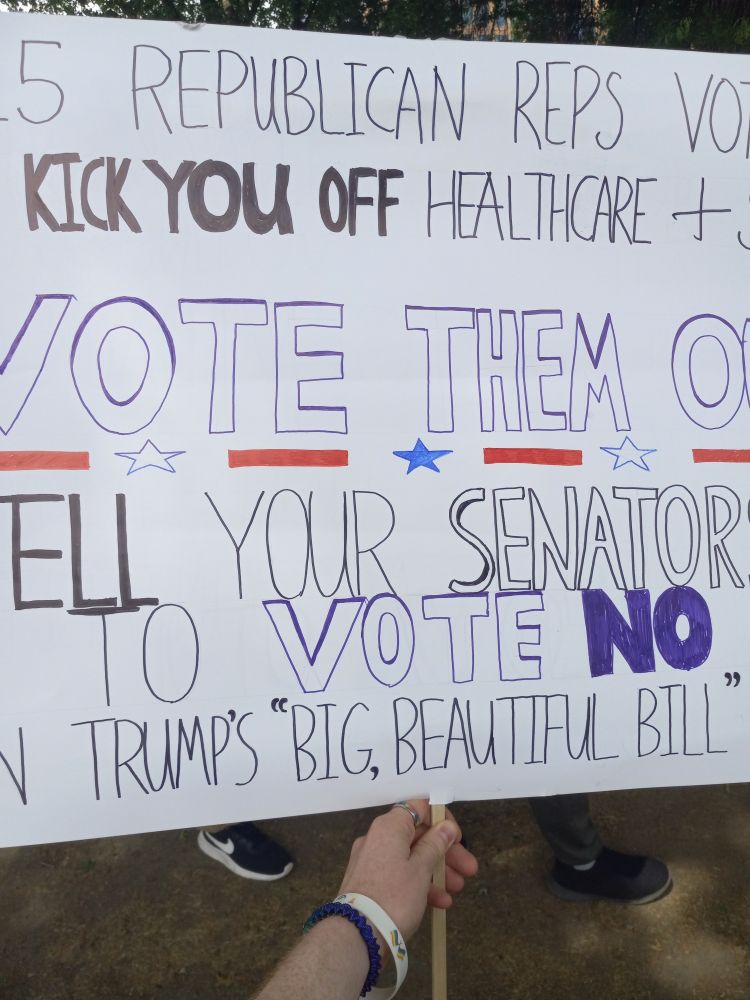 15 REPUBLICAN REPS VOT
KICK YOU OFF HEALTHCARE + S
VOTE THEM OU
ELL YOUR SENATORS
TO VOTE NO
N TRUMP'S "BIG, BEAUTIFUL BILL"